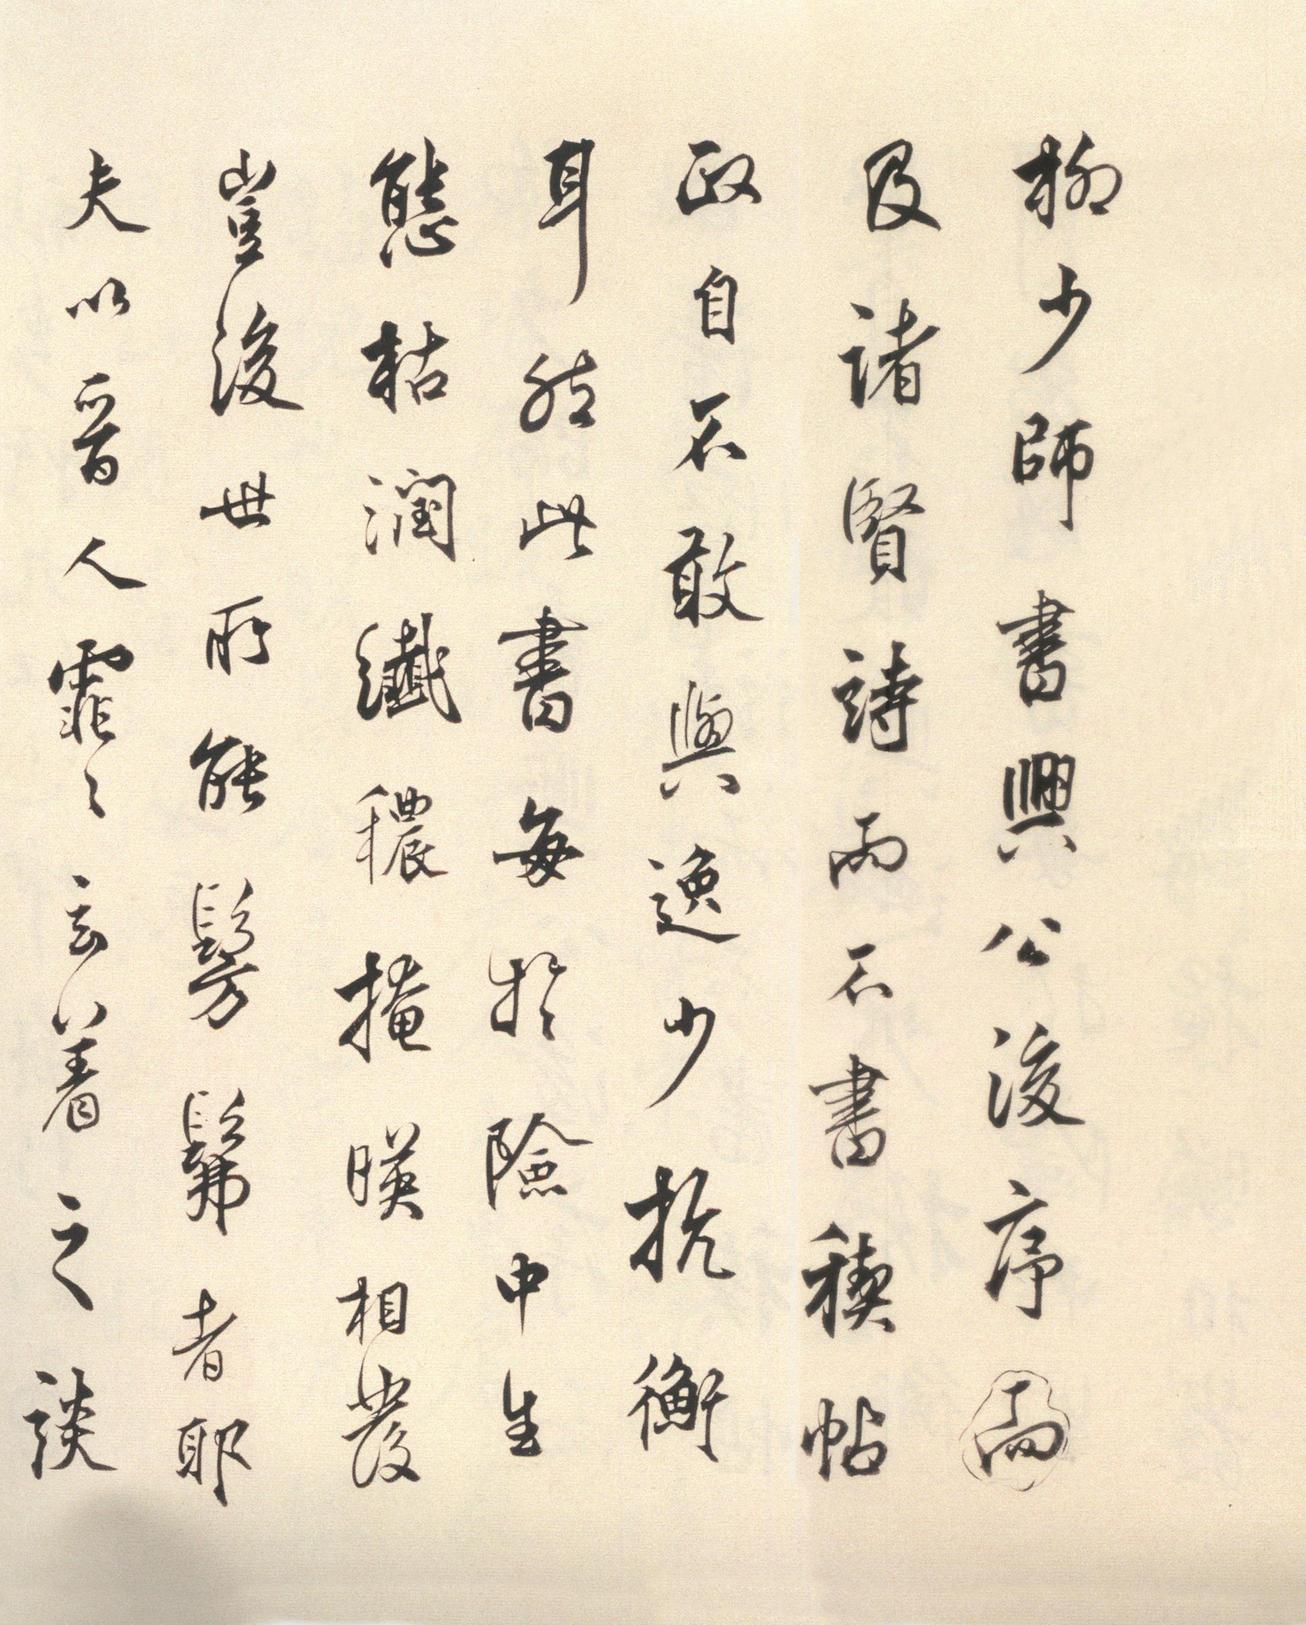 柳少師書興公後序而
及諸賢詩而不書稧帖
政自不敢與逸少抗衡
耳然此書每於險中生
態枯潤纖穠掩映相發
豈後世所能髣髴者耶
夫以晉人霏〻玄著之談